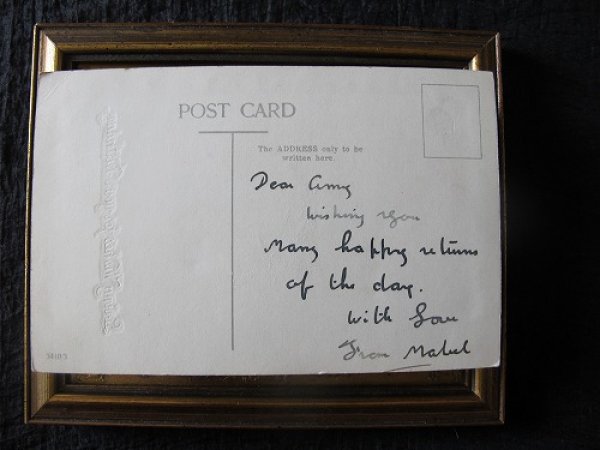 POST CARD
The ADDRESS only to be
written here.
Dear Amy
wishing you
Many happy returns
of the day.
with Love
From Mabel